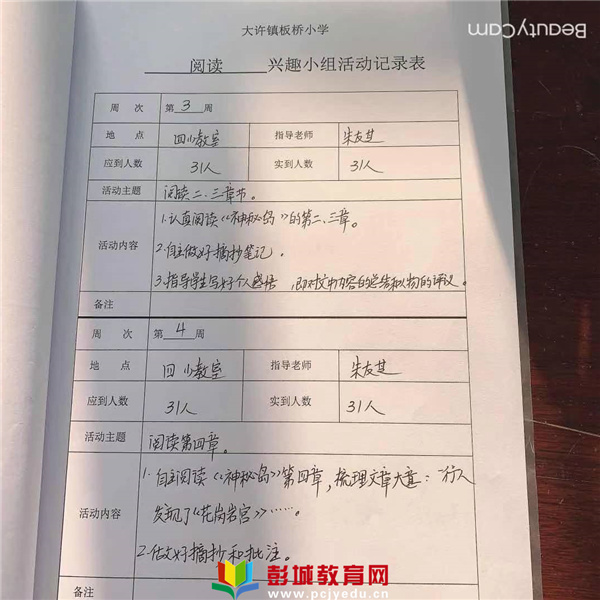 BeautyCam
大许镇板桥小学
阅读 兴趣小组活动记录表
周 次 第 3 周
地 点 四(1)教室 指导老师 朱友芝
应到人数 31人 实到人数 31人
活动主题 阅读二、三章节。
活动内容
1.认真阅读《神秘岛》的第二、三章。
2.自主做好摘抄笔记。
3.指导学生写好个人感悟,即对文中内容的总结和人物的评议。
备注
周 次 第 4 周
地 点 四(1)教室 指导老师 朱友芝
应到人数 31人 实到人数 31人
活动主题 阅读第四章。
活动内容
1.自主阅读《神秘岛》第四章,梳理文章大意:一行人
发现了《花岗岩宫》……。
2.做好摘抄和批注。
备注
彭城教育网
www.pcjyedu.cn